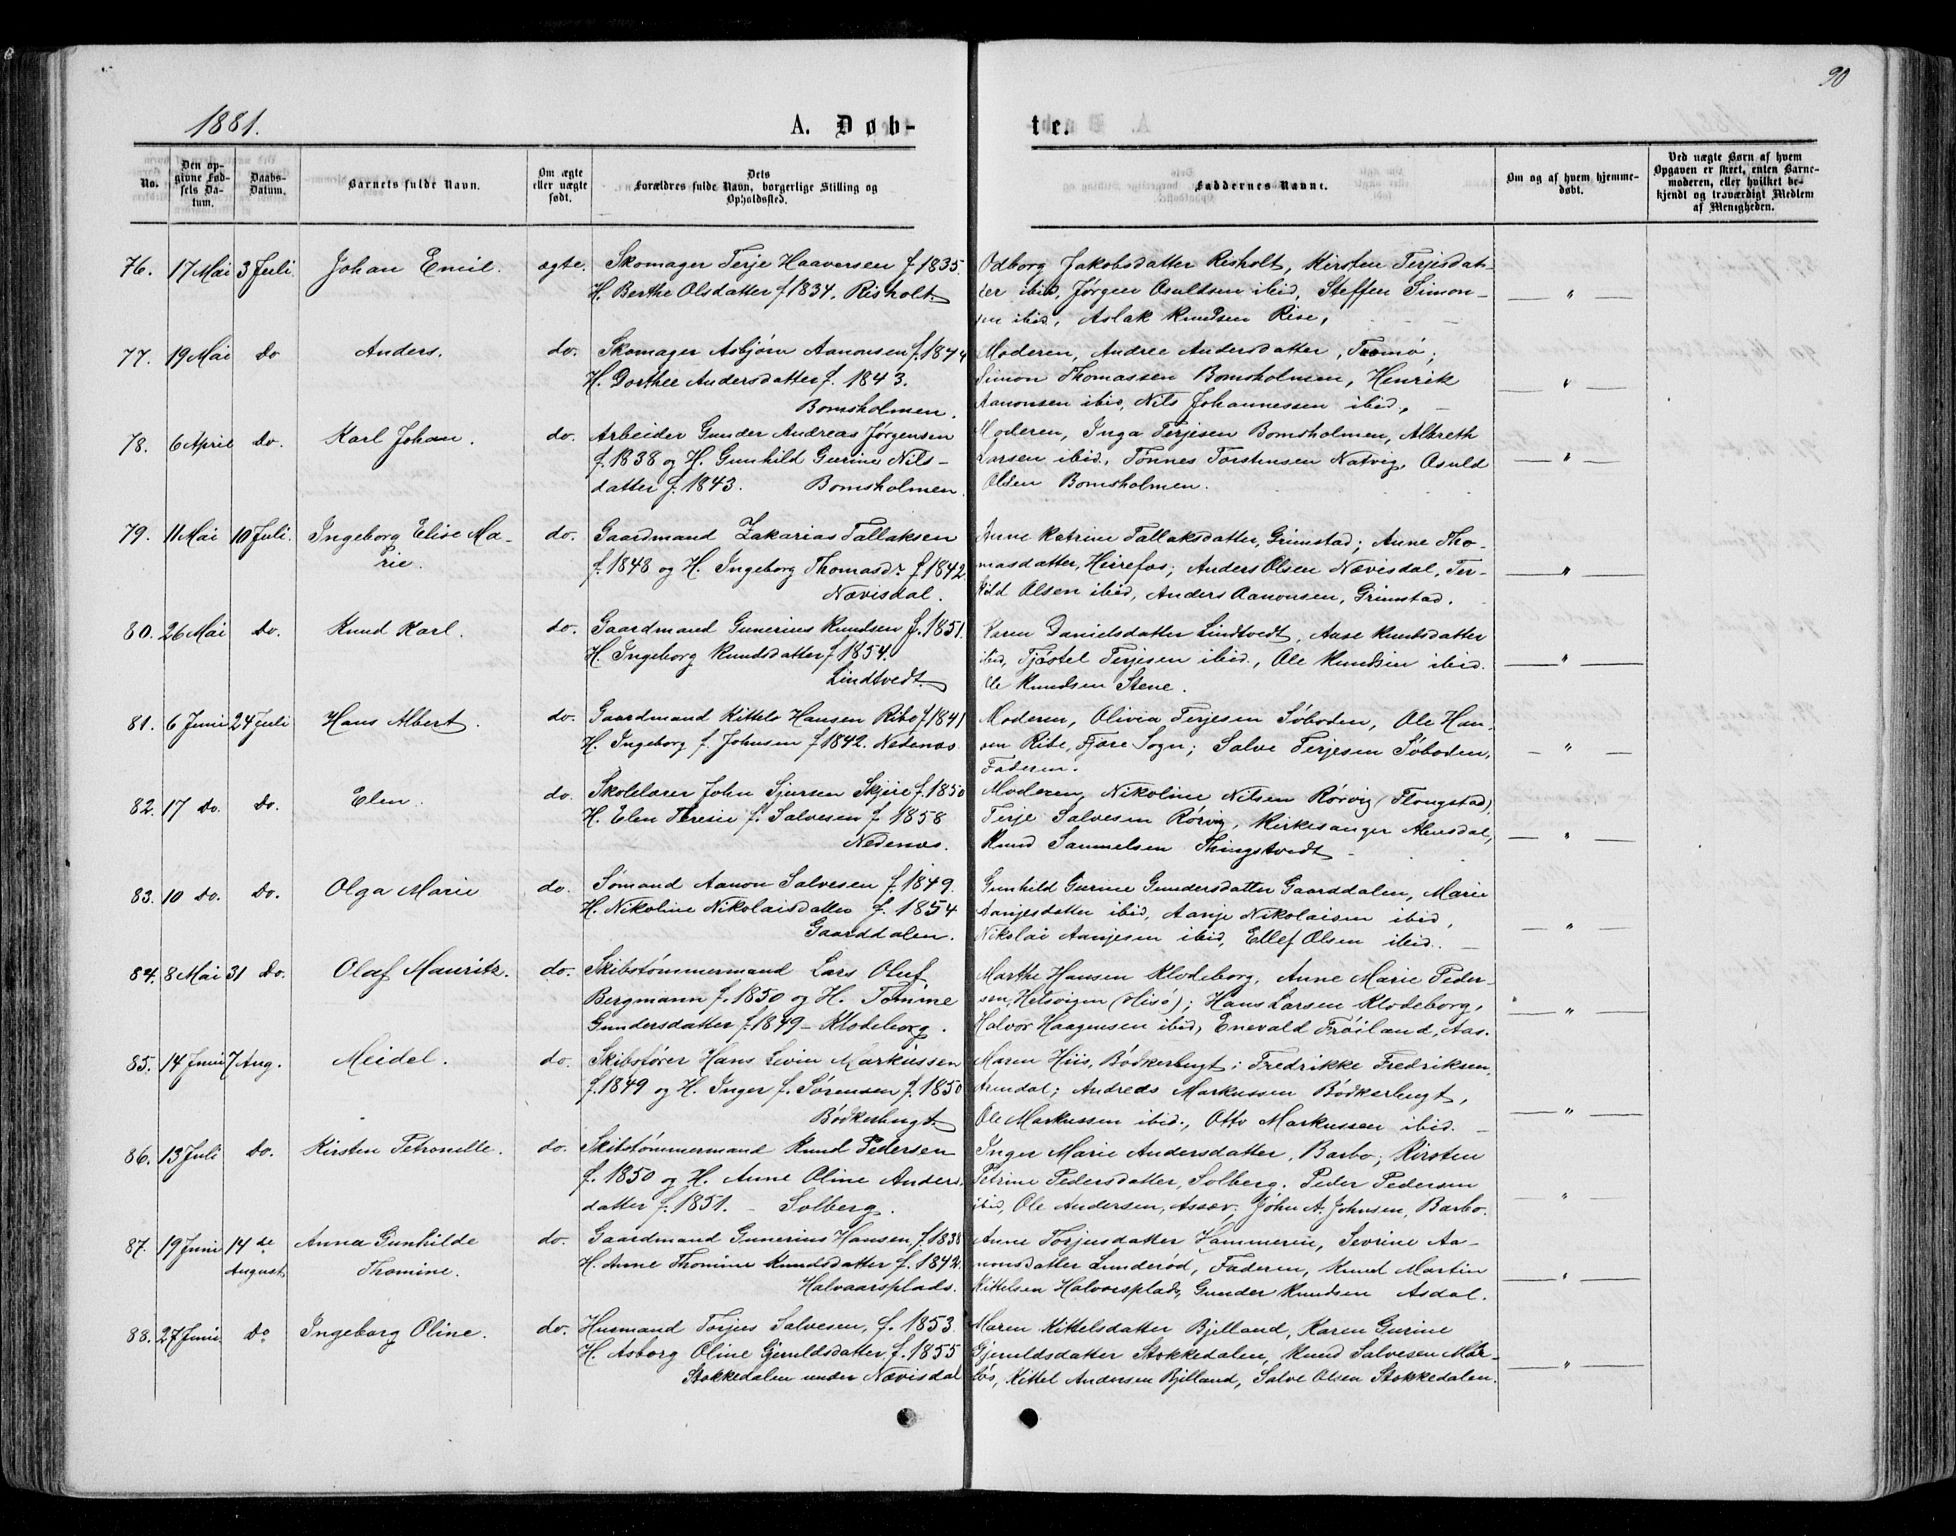 90
1881.
A. Døb-
te.
No.
Den op-
givne Fød-
sels Da-
tum.
Daabs-
Datum.
Barnets fulde Navn.
Om ægte
eller uægte
født.
Dets
Forældres fulde Navn, borgerlige Stilling og
Opholdssted.
Faddernes Navne.
Om og af hvem hjemme-
døbt.
Ved uægte Børn af hvem
Opgaven er skeet, enten Barne-
moderen, eller hvilket be-
kjendt og troværdigt Medlem
af Menigheden.
76. 17 Mai 3 Juli. Johan Emil. ægte. Skomager Terje Haaversen f. 1835
H. Berthe Olsdatter f. 1834. Risholt.
Odborg Jakobsdatter Risholt, Kirsten Terjesdat-
ter ibid, Jørgen Osuldsen ibid, Steffen Simon-
sen ibid, Aslak Knudsen Rise,
— " —
77. 19 Mai Do Anders. do. Skomager Asbjørn Aanonsen f. 1844
H. Dorthee Andersdatter f. 1843.
Bomsholmen.
Moderen, Andree Andersdatter, Tromø;
Simon Thomassen Bomsholmen, Henrik
Aanonsen ibid, Nils Johannessen ibid.
— " —
78. 6 April Do. Karl Johan. do. Arbeider Gunder Andreas Jørgensen
f. 1838 og H. Gunhild Gurine Nils-
datter f. 1843. Bomsholmen.
Moderen, Inga Terjesen Bomsholmen, Albreth
Larsen ibid, Tønnes Torstensen Natvig, Osuld
Olsen Bomsholmen.
— " —
79. 11 Mai 10 Juli. Ingeborg Elise Ma-
rie. do. Gaardmand Zakarias Tallaksen
f. 1848 og H. Ingeborg Thomasdr. f. 1842
Nævisdal.
Anne Katrine Tallaksdatter, Grimstad; Anne Tho-
masdatter, Hirrefos; Anders Olsen Nævisdal, Ter-
kild Olsen ibid, Anders Aanonsen, Grimstad.
— " —
80. 26 Mai Do. Knud Karl. do. Gaardmand Gunerius Knudsen f. 1851.
H. Ingeborg Knudsdatter f. 1854.
Lindtvedt.
Karen Danielsdatter Lindtvedt, Aase Knudsdatter
ibid, Tjøstel Terjesen ibid., Ole Knudsen ibid.
Ole Knudsen Stene.
— " —
81. 6 Juni 24 Juli Hans Albert. do. Gaardmand Kittels Hansen Ribe f. 1841
H. Ingeborg f. Johnsen f. 1842. Nedenæs.
Moderen, Olivia Terjesen Søboden, Ole Han-
sen Ribe, Fjære Sogn; Salve Terjesen Søboden,
Faderen.
— " —
82. 17 Do. Do. Elen. do. Skolelærer John Sjursen Skjeie f. 1850
H. Elen Teresie f. Salvesen f. 1858
Nedenæs.
Moderen, Nikoline Nilsen Rørvig (Flougstad),
Terje Salvesen Rørvig, Kirkesanger Alvesdal,
Knud Samuelsen Thingstvedt
— " —
83. 10 Do. Do. Olga Marie do. Sømand Aanon Salvesen f. 1849.
H. Nikoline Nikolaisdatter f. 1854
Gaarddalen.
Gunhild Gurine Gundersdatter Gaarddalen, Marie
Aanjesdatter ibid, Aanje Nikolaisen ibid,
Nikolai Aanjesen ibid, Ellef Olsen ibid.
— " —
84. 8 Mai 31 Do. Olaf Mauritz. do. Skibstømmermand Lars Oluf
Bergmann f. 1850 og H. Tomine
Gundersdatter f. 1849 - Klodeborg.
Marthe Hansen Klodeborg, Anne Marie Peder-
sen, Helsvigen (Hisø); Hans Larsen Klodeborg,
Halvor Haagensen ibid, Enevald Frøiland, Aas.
— " —
85. 14 Juni 7 Aug. Meidel. do. Skibsfører Hans Levin Markussen
f. 1849 og H. Inger f. Sørensen f. 1850
Bødkerbugt.
Maren Hiis, Bødkerbugt; Fredrikke Fredriksen,
Arendal; Andreds Markussen Bødkerbugt,
Ole Markussen ibid., Otto Markussen ibid.
— " —
86. 13 Juli Do. Kirsten Petronelle. do. Skibstømmermand Knud Pedersen
f. 1850 og H. Anne Oline Anders-
datter f. 1851. - Solberg.
Inger Marie Andersdatter, Barbo; Kirsten
Petrine Pedersdatter, Solberg. Peder Pedersen
ibid, Ole Andersen, Assev, John A. Johnsen, Barbo.
— " —
87. 19 Juni 14 de
August Anna Gunhilde
Thomine. do. Gaardmand Gunerius Hansen, f. 1838
H. Anne Thomine Knudsdatter f. 1842.
Halvaarsplads.
Anne Torjusdatter Hammeren, Sevrine Aa-
nonsdatter Lunderød, Faderen, Knud Martin
Kittelsen Halvorsplads, Gunder Knudsen Asdal.
— " —
88. 27 Juni Do Ingeborg Oline. do. Husmand Torjus Salvesen, f. 1853.
H. Asborg Oline Gjeruldsdatter f. 1855
Stokkedalen under Nævisdal
Maren Kittelsdatter Bjelland, Karen Gurine
Gjeruldsdatter Stokkedalen, Knud Salvesen Mør-
føs, Kittel Andersen Bjelland, Salve Olsen Stokkedalen.
— " —